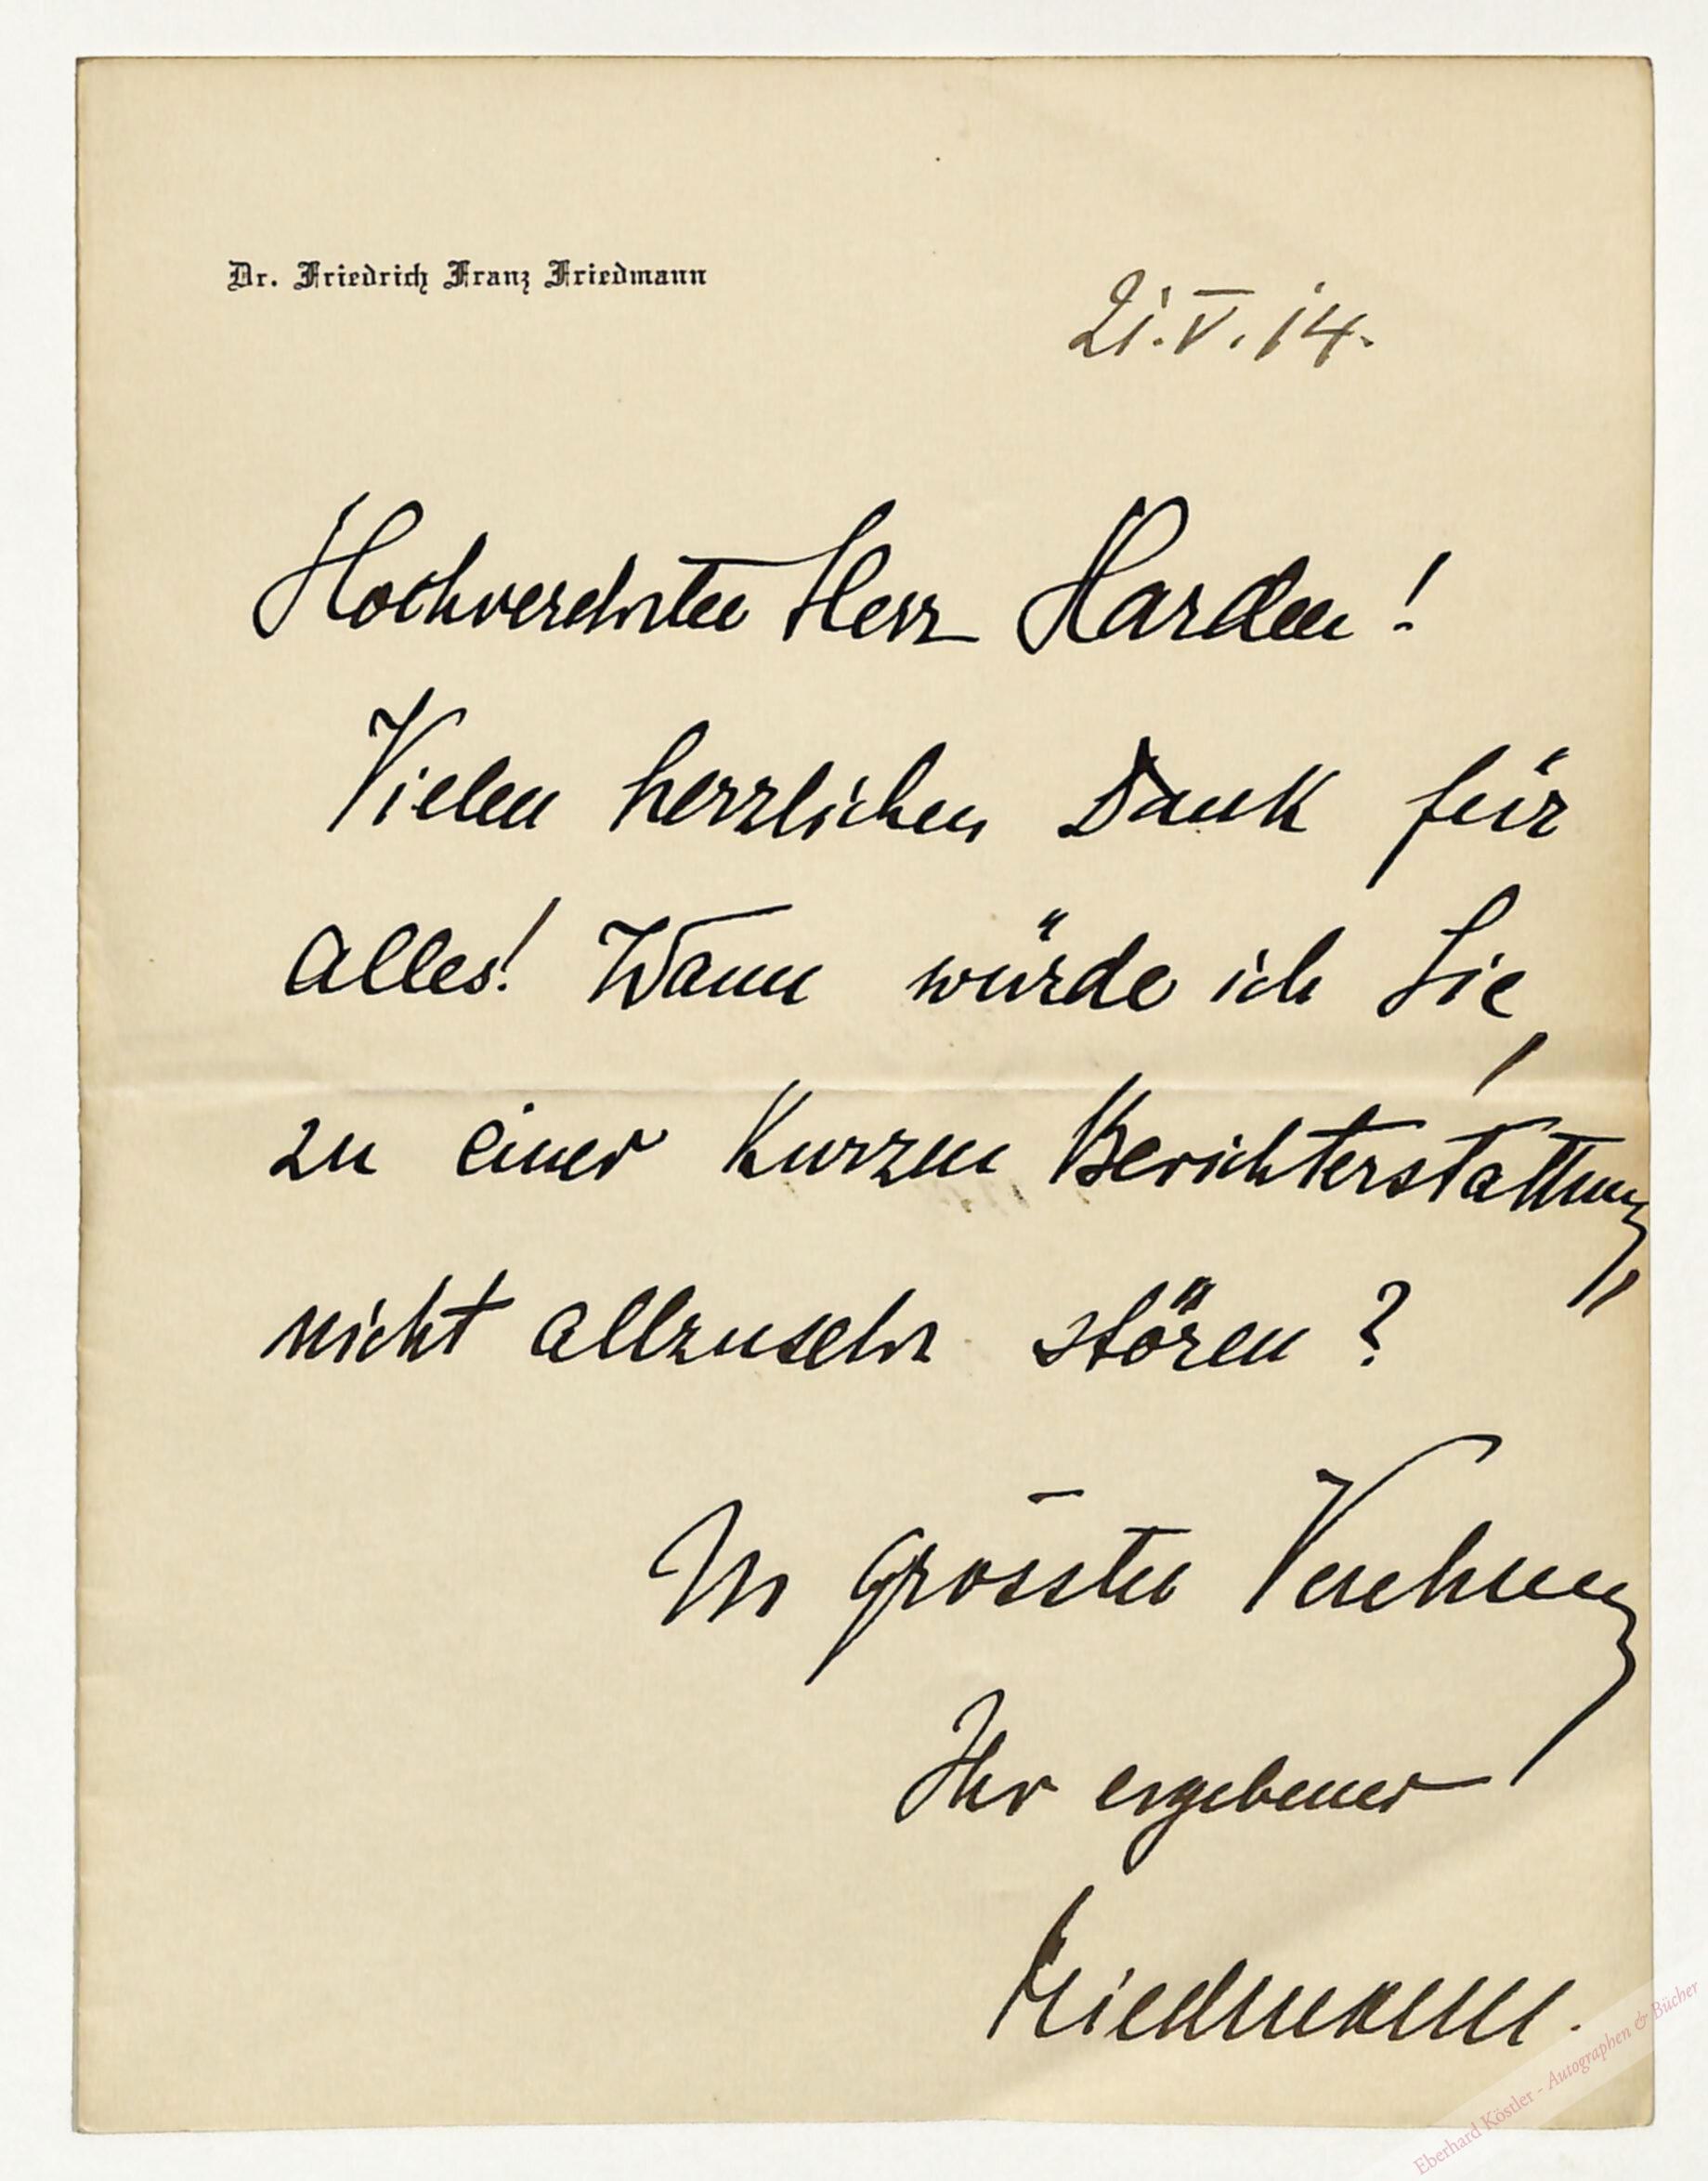 Dr. Friedrich Franz Friedmann
21.V.14.
Hochverehrter Herr Harden!
Vielen herzlichen Dank für
alles! Wann würde ich Sie
zu einer kurzen Berichterstattung,
nicht allzusehr stören?
In grösster Verehrung
Ihr ergebener
Friedmann.
Eberhard Köstler - Autographen & Bücher